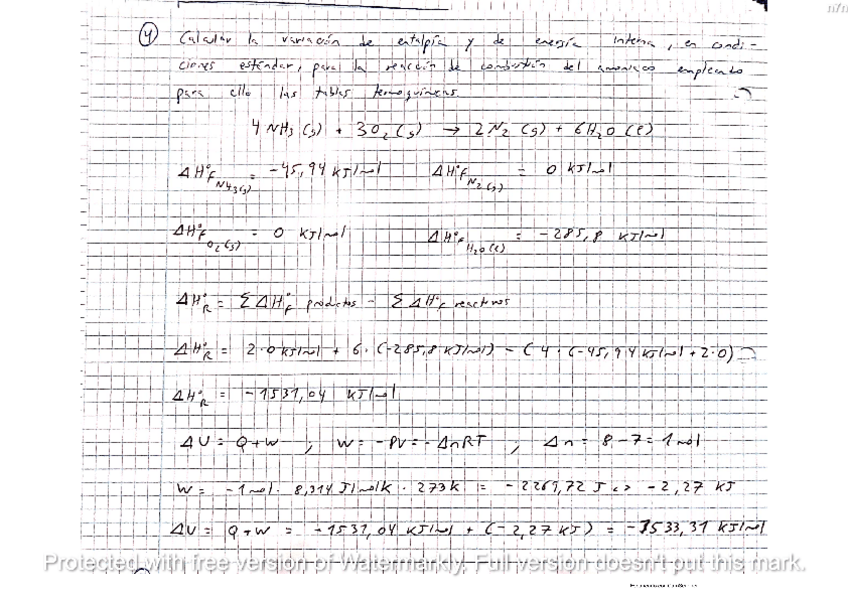 4 Calcular la variación de entalpía y de energía interna, en condi-
ciones estándar, para la reacción de combustión del amoniaco empleando
para ello las tablas termoquímicas.
4 NH3 (g) + 3O2 (g) → 2N2 (g) + 6H2O (l)
ΔH°f NH3(g) = -45,94 KJ/mol ΔH°f N2(g) = 0 KJ/mol
ΔH°f O2(g) = 0 KJ/mol ΔH°f H2O(l) = -285,8 KJ/mol
ΔH°R = Σ ΔH°f productos - Σ ΔH°f reactivos
ΔH°R = 2·0 KJ/mol + 6·(-285,8 KJ/mol) - (4·(-45,94 KJ/mol + 2·0)
ΔH°R = -1531,04 KJ/mol
ΔU = Q+W ; W = -PV = -ΔnRT ; Δn = 8-7 = 1 mol
W = -1 mol · 8,314 J/molK · 273K = -2269,72 J <> -2,27 KJ
ΔU = Q+W = -1531,04 KJ/mol + (-2,27 KJ) = -1533,31 KJ/mol
Protected with free version of Watermarkly. Full version doesn't put this mark.